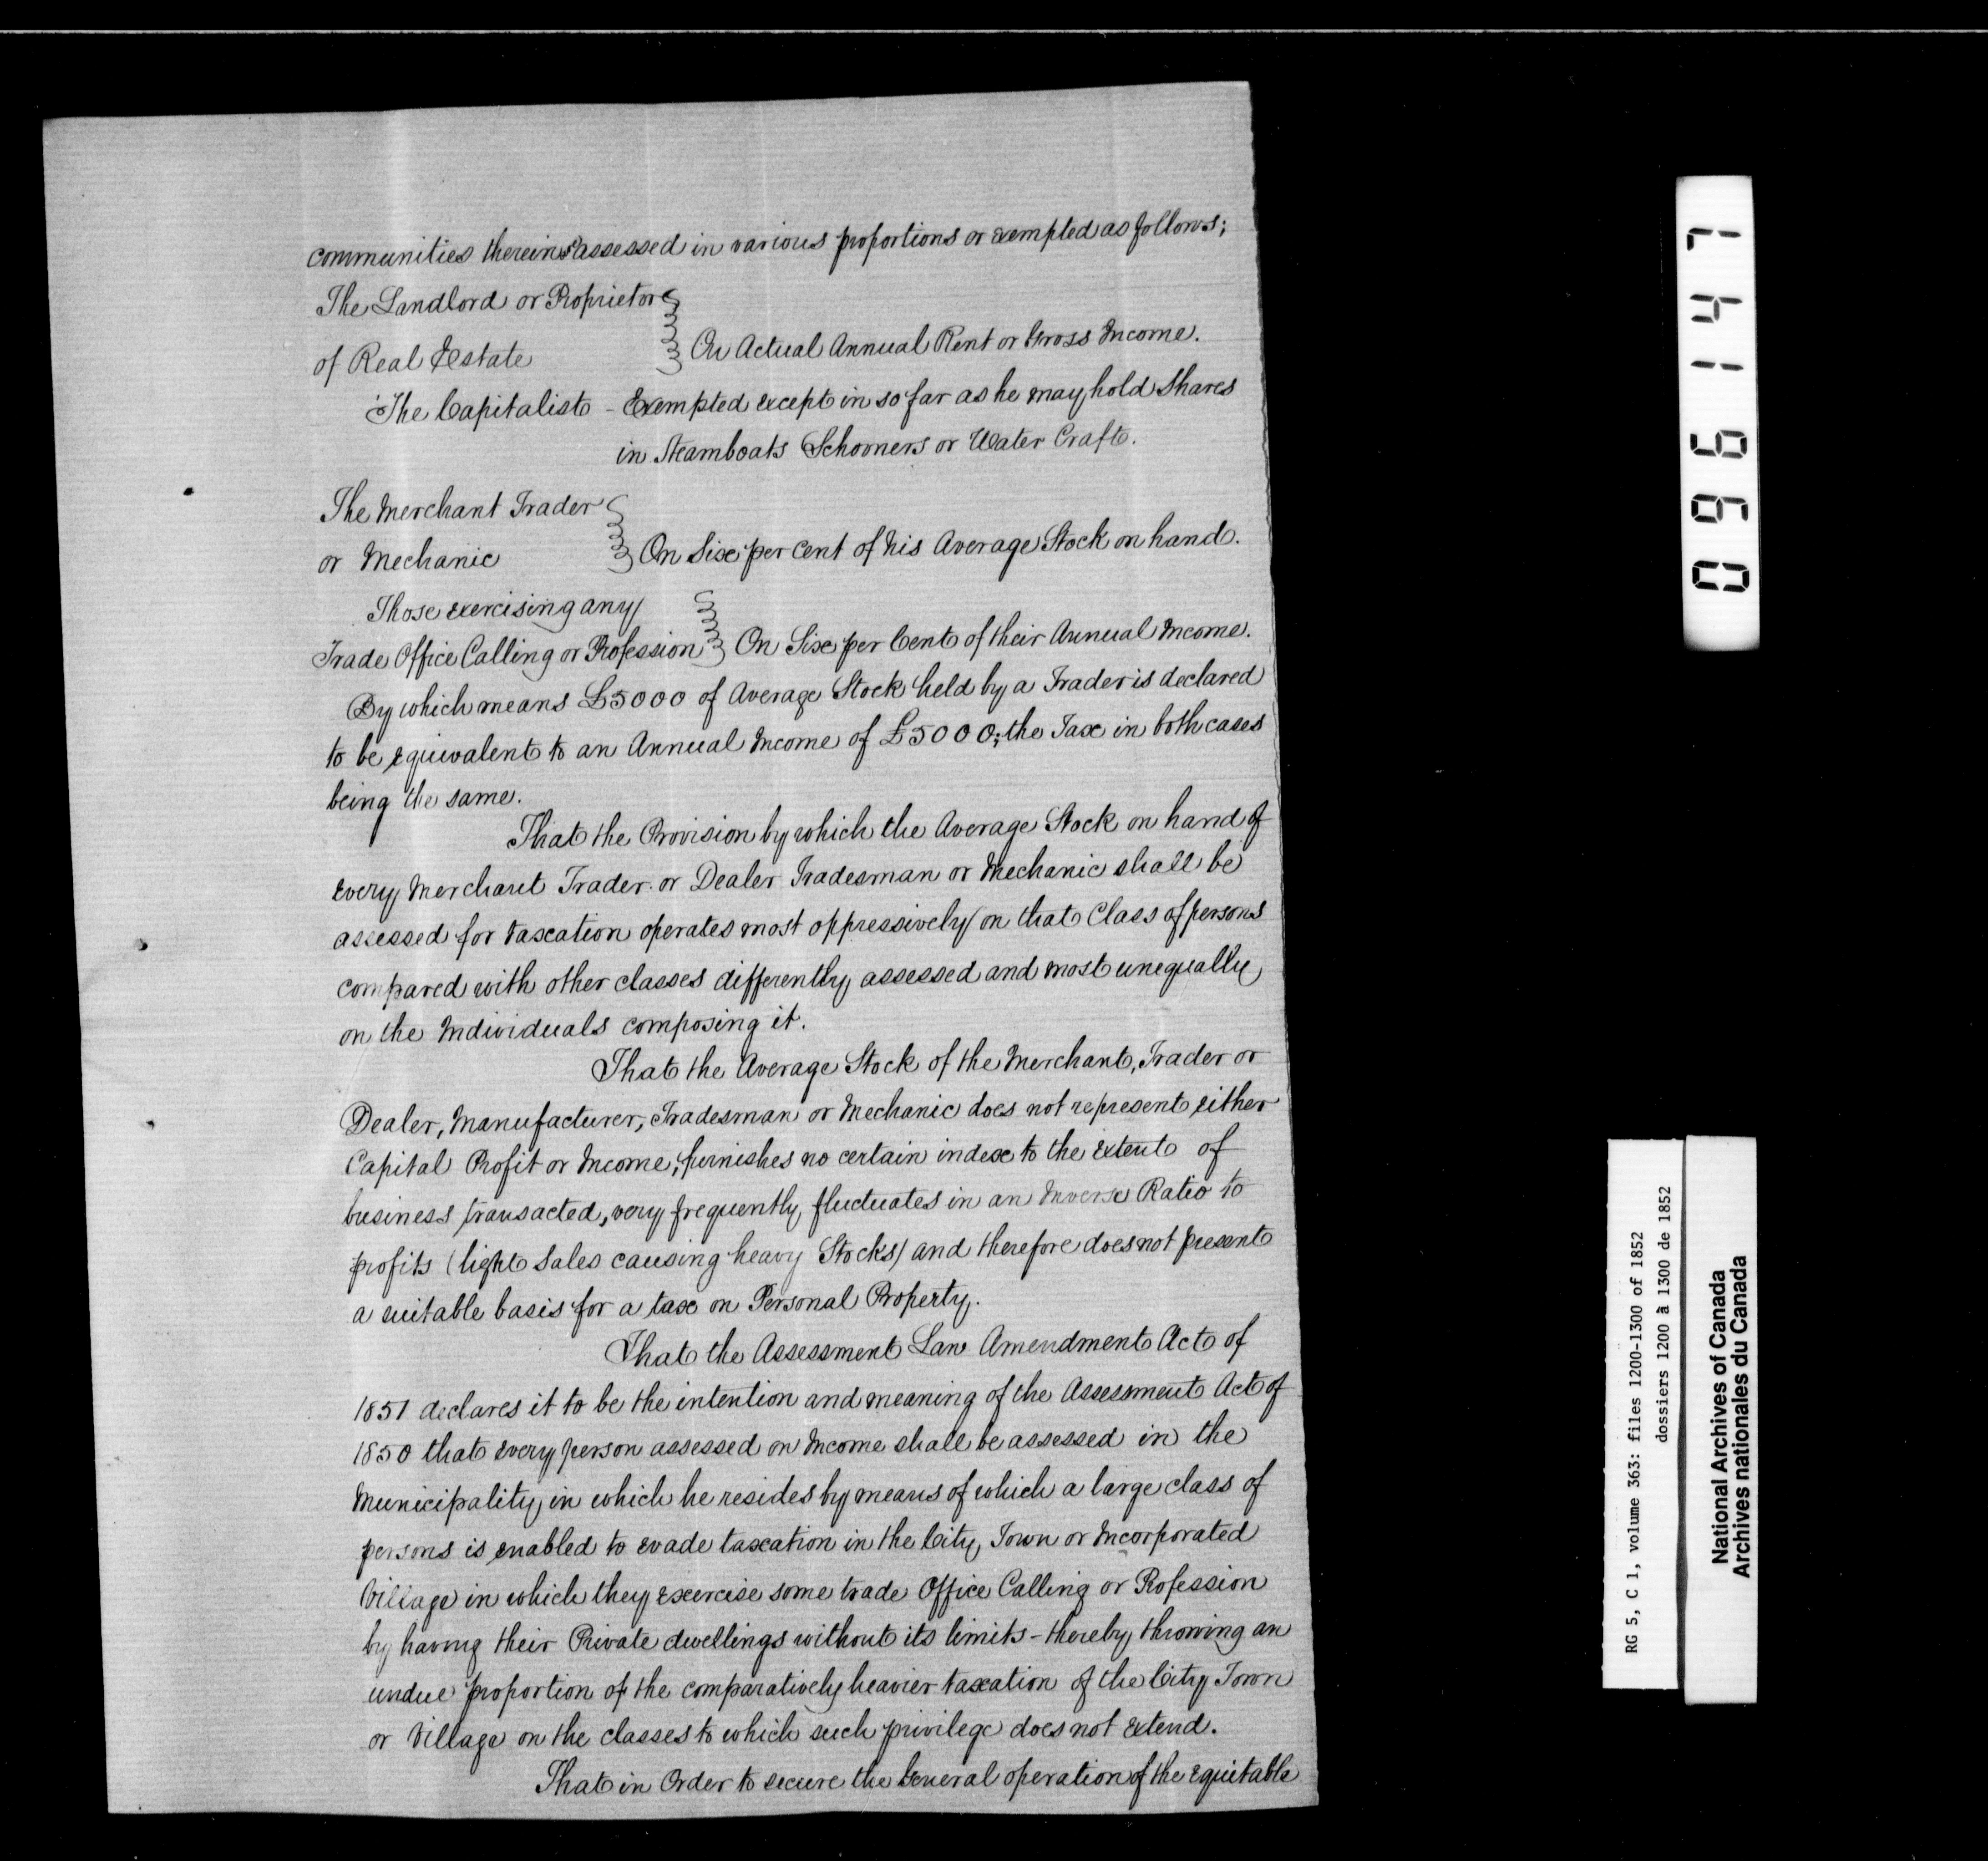 communities therein assessed in various proportions or exempted as follows;
The Landlord or Proprietor
of Real Estate } On Actual Annual Rent or Gross Income.
The Capitalist - Exempted except in so far as he may hold Shares
in Steamboats Schooners or Water Craft.
The Merchant Trader
or Mechanic } On Six per cent of his Average Stock on hand.
Those exercising any
Trade Office Calling or Profession } On Six per Cent of their Annual Income.
By which means £5000 of Average Stock held by a Trader is declared
to be equivalent to an Annual Income of £5000; the Tax in both cases
being the same.
That the Provision by which the Average Stock on hand of
every Merchant Trader or Dealer Tradesman or Mechanic shall be
assessed for taxation operates most oppressively on that Class of persons
compared with other classes differently assessed and most unequally
on the Individuals composing it.
That the Average Stock of the Merchant, Trader or
Dealer, Manufacturer, Tradesman or Mechanic does not represent either
Capital Profit or Income, furnishes no certain index to the extent of
business transacted, very frequently fluctuates in an Inverse Ratio to
profits (light Sales causing heavy Stocks) and therefore does not present
a suitable basis for a tax on Personal Property.
That the Assessment Law Amendment Act of
1851 declares it to be the intention and meaning of the Assessment Act of
1850 that every person assessed on Income shall be assessed in the
Municipality in which he resides by means of which a large class of
persons is enabled to evade taxation in the City, Town or Incorporated
Village in which they exercise some trade Office Calling or Profession
by having their Private dwellings without its limits - thereby throwing an
undue proportion of the comparatively heavier taxation of the City Town
or Village on the classes to which such privilege does not extend.
That in Order to secure the General operation of the equitable
096147
RG 5, C 1, volume 363: files 1200-1300 of 1852
dossiers 1200 à 1300 de 1852
National Archives of Canada
Archives nationales du Canada